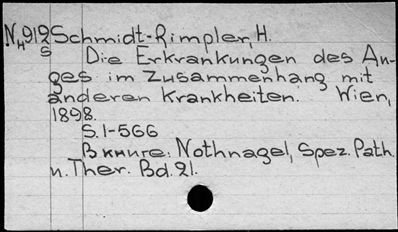 N 912 Schmidt-Rimpler, H.
H S
Die Erkrankungen des Au-
ges im Zusammenhang mit
anderen Krankheiten. Wien,
1898.
S. 1-566
В книге: Nothnagel, Spez. Path.
u. Ther. Bd. 21.